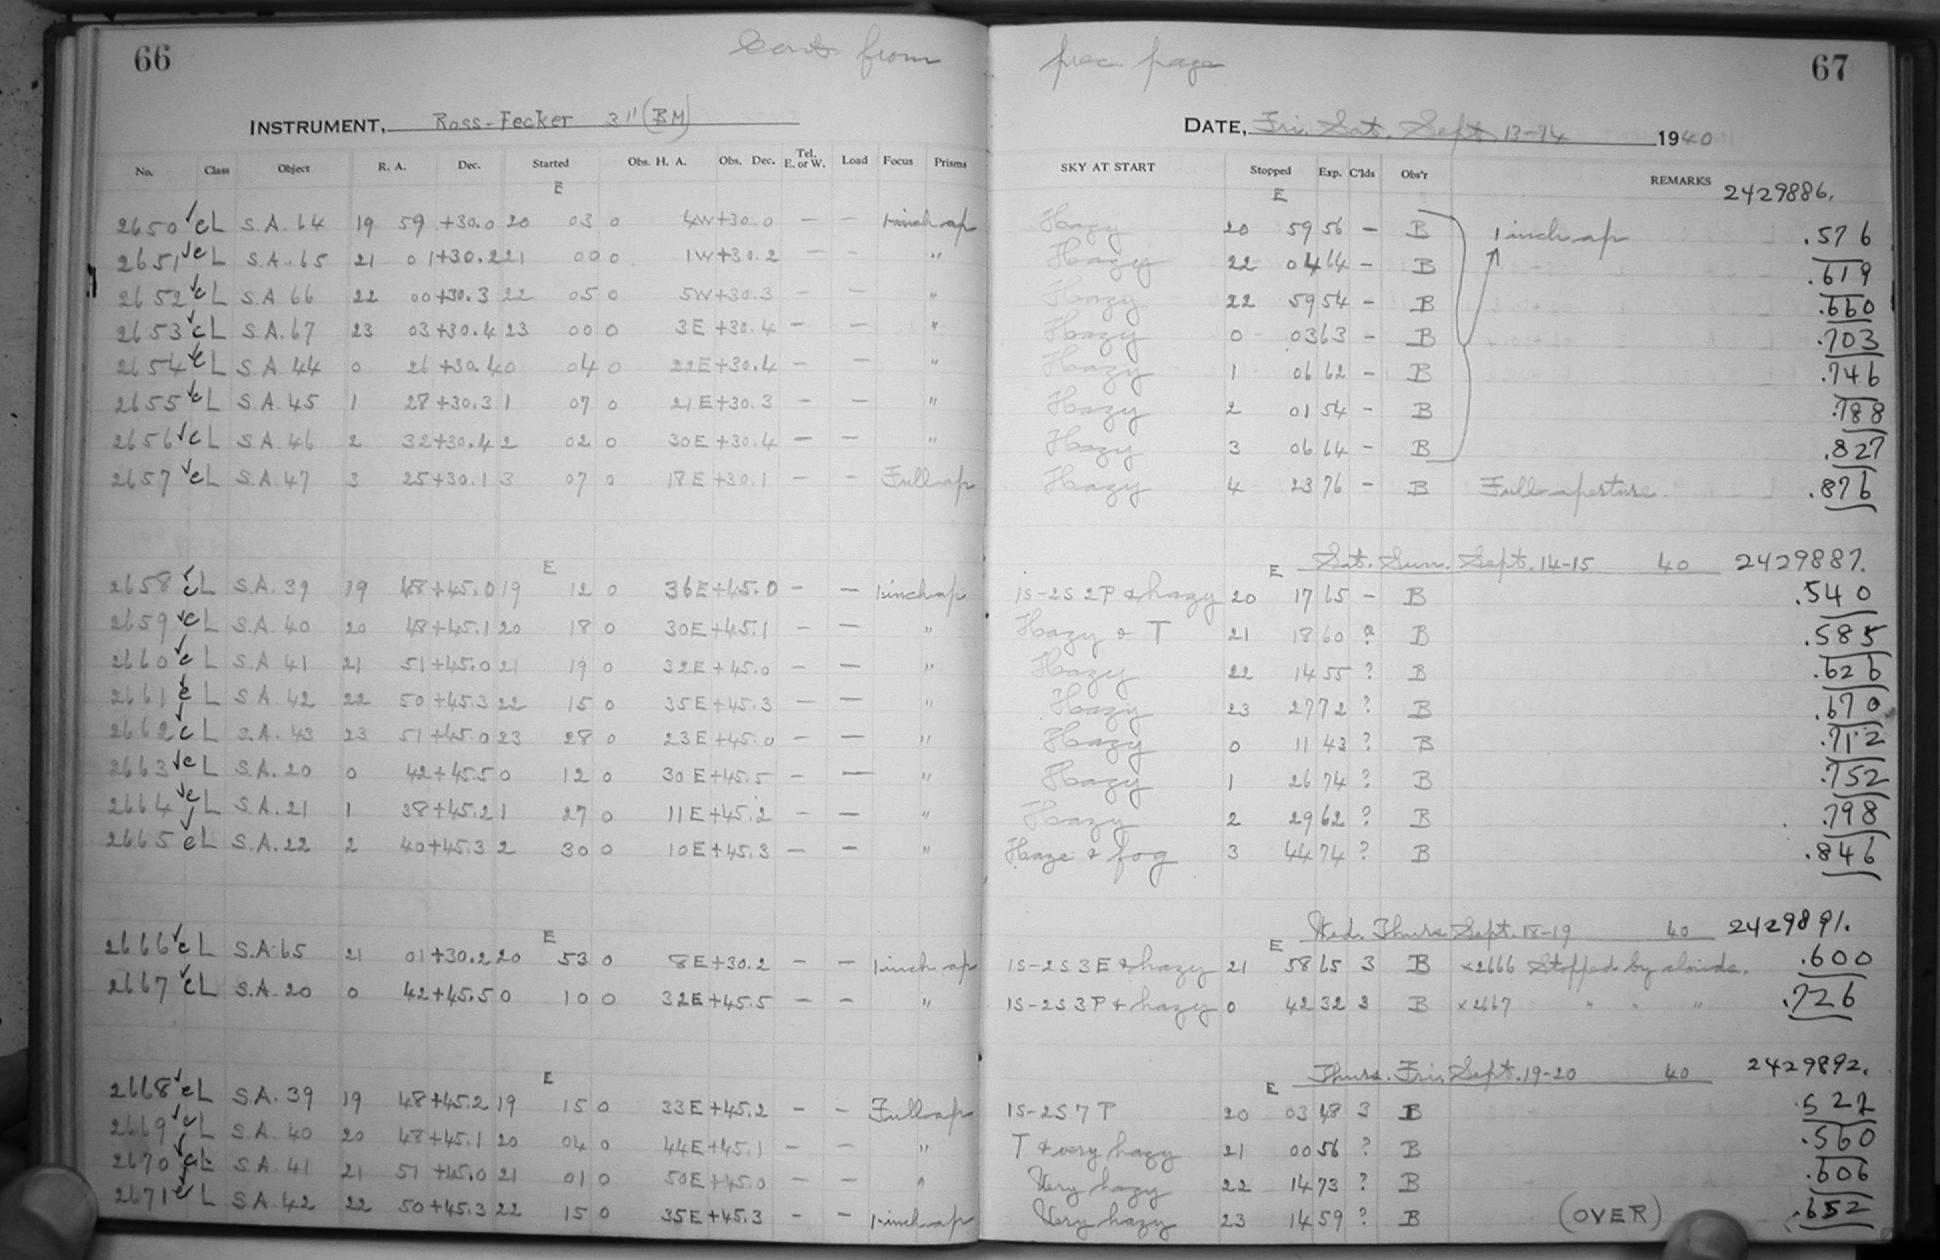 66 Cont. from prec. page 67
INSTRUMENT, Ross-Fecker 3" (BM) DATE, Fri. Sat. Sept. 13-14 1940
No. Class Object R. A. Dec. Started Obs. H. A. Obs. Dec. Tel. E. or W. Load Focus Prisms SKY AT START Stopped Exp. C'lds Obs'r REMARKS 2429886.
E E
2650 ✓ cL S.A. 64 19 59 +30.0 20 03 0 4W +30.0 — — 1-inch ap Hazy 20 59 56 — B 1 inch ap .576
2651 ✓ cL S.A. 65 21 01 +30.2 21 00 0 1W +30.2 — — " Hazy 22 04 64 — B .619
2652 ✓ cL S.A. 66 22 00 +30.3 22 05 0 5W +30.3 — — " Hazy 22 59 54 — B .660
2653 ✓ cL S.A. 67 23 03 +30.4 23 00 0 3E +30.4 — — " Hazy 0 03 63 — B .703
2654 ✓ cL S.A. 44 0 26 +30.4 0 04 0 22E +30.4 — — " Hazy 1 06 62 — B .746
2655 ✓ cL S.A. 45 1 28 +30.3 1 07 0 21E +30.3 — — " Hazy 2 01 54 — B .788
2656 ✓ cL S.A. 46 2 32 +30.4 2 02 0 30E +30.4 — — " Hazy 3 06 64 — B .827
2657 ✓ cL S.A. 47 3 25 +30.1 3 07 0 18E +30.1 — — Full ap Hazy 4 23 76 — B Full aperture. .876
E E Sat. Sun. Sept. 14-15 40 2429887.
2658 ✓ cL S.A. 39 19 48 +45.0 19 12 0 36E +45.0 — — 1-inch ap 1S-2S 2P & hazy 20 17 65 — B .540
2659 ✓ cL S.A. 40 20 48 +45.1 20 18 0 30E +45.1 — — " Hazy & T 21 18 60 ? B .585
2660 ✓ cL S.A. 41 21 51 +45.0 21 19 0 32E +45.0 — — " Hazy 22 14 55 ? B .626
2661 ✓ cL S.A. 42 22 50 +45.3 22 15 0 35E +45.3 — — " Hazy 23 27 72 ? B .670
2662 ✓ cL S.A. 43 23 51 +45.0 23 28 0 23E +45.0 — — " Hazy 0 11 43 ? B .712
2663 ✓ cL S.A. 20 0 42 +45.5 0 12 0 30E +45.5 — — " Hazy 1 26 74 ? B .752
2664 ✓ cL S.A. 21 1 38 +45.2 1 27 0 11E +45.2 — — " Hazy 2 29 62 ? B .798
2665 ✓ cL S.A. 22 2 40 +45.3 2 30 0 10E +45.3 — — " Haze & fog 3 44 74 ? B .846
E E Wed. Thurs. Sept. 18-19 40 2429891.
2666 ✓ cL S.A. 65 21 01 +30.2 20 53 0 8E +30.2 — — 1-inch ap 1S-2S 3E & hazy 21 58 65 3 B ×2666 Stopped by clouds. .600
2667 ✓ cL S.A. 20 0 42 +45.5 0 10 0 32E +45.5 — — " 1S-2S 3P & hazy 0 42 32 3 B ×2667 " " " .726
E E Thurs. Fri. Sept. 19-20 40 2429892.
2668 ✓ cL S.A. 39 19 48 +45.2 19 15 0 33E +45.2 — — Full ap 1S-2S 7P 20 03 48 3 B .522
2669 ✓ cL S.A. 40 20 48 +45.1 20 04 0 44E +45.1 — — " T & very hazy 21 00 56 ? B .560
2670 ✓ cL S.A. 41 21 51 +45.0 21 01 0 50E +45.0 — — " Very hazy 22 14 73 ? B .606
2671 ✓ cL S.A. 42 22 50 +45.3 22 15 0 35E +45.3 — — 1-inch ap Very hazy 23 14 59 ? B (OVER) .652